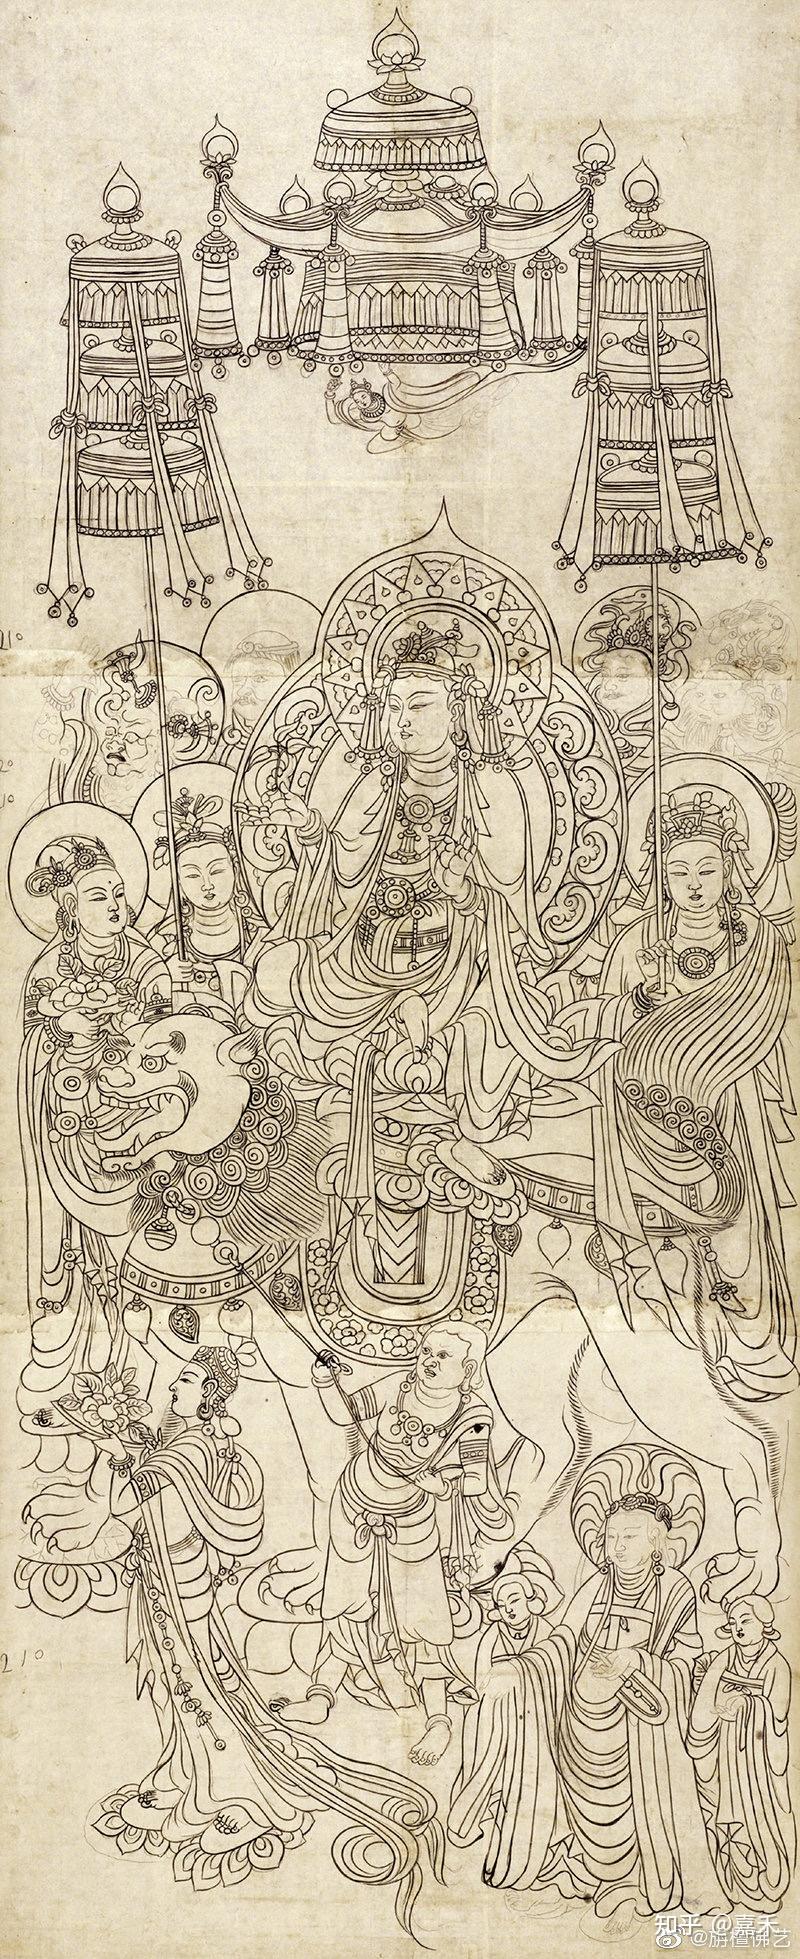 210
20
10
210
知乎 @嘉禾
@旃檀佛艺